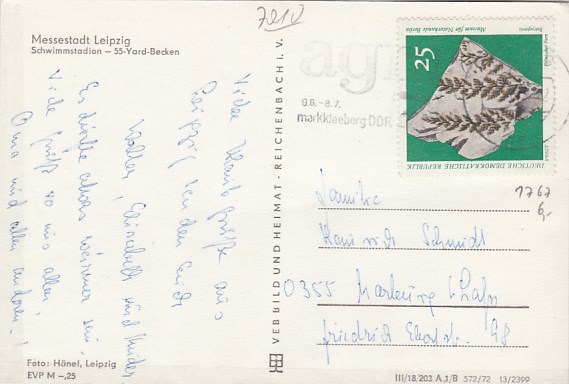 Messestadt Leipzig
Schwimmstadion – 55-Yard-Becken
Viele Urlaubsgrüße aus
Leipzig senden Euch
Walter, Elisabeth und Kinder
Es dürfte etwas wärmer sein.
Viele Grüße von uns allen,
Oma und allen anderen!
Foto: Hänel, Leipzig
EVP M –,25
VEB BILD UND HEIMAT · REICHENBACH i. V.
7010
agra
9.6.-8.7.
markkleeberg DDR
25
Museum für Naturkunde Berlin
DEUTSCHE DEMOKRATISCHE REPUBLIK
1767
6,-
Familie
Schmidt
0355 Marburg / Lahn
Friedrich Ebertstr. 98
III/18/203 A 1/B 572/72 13/2399